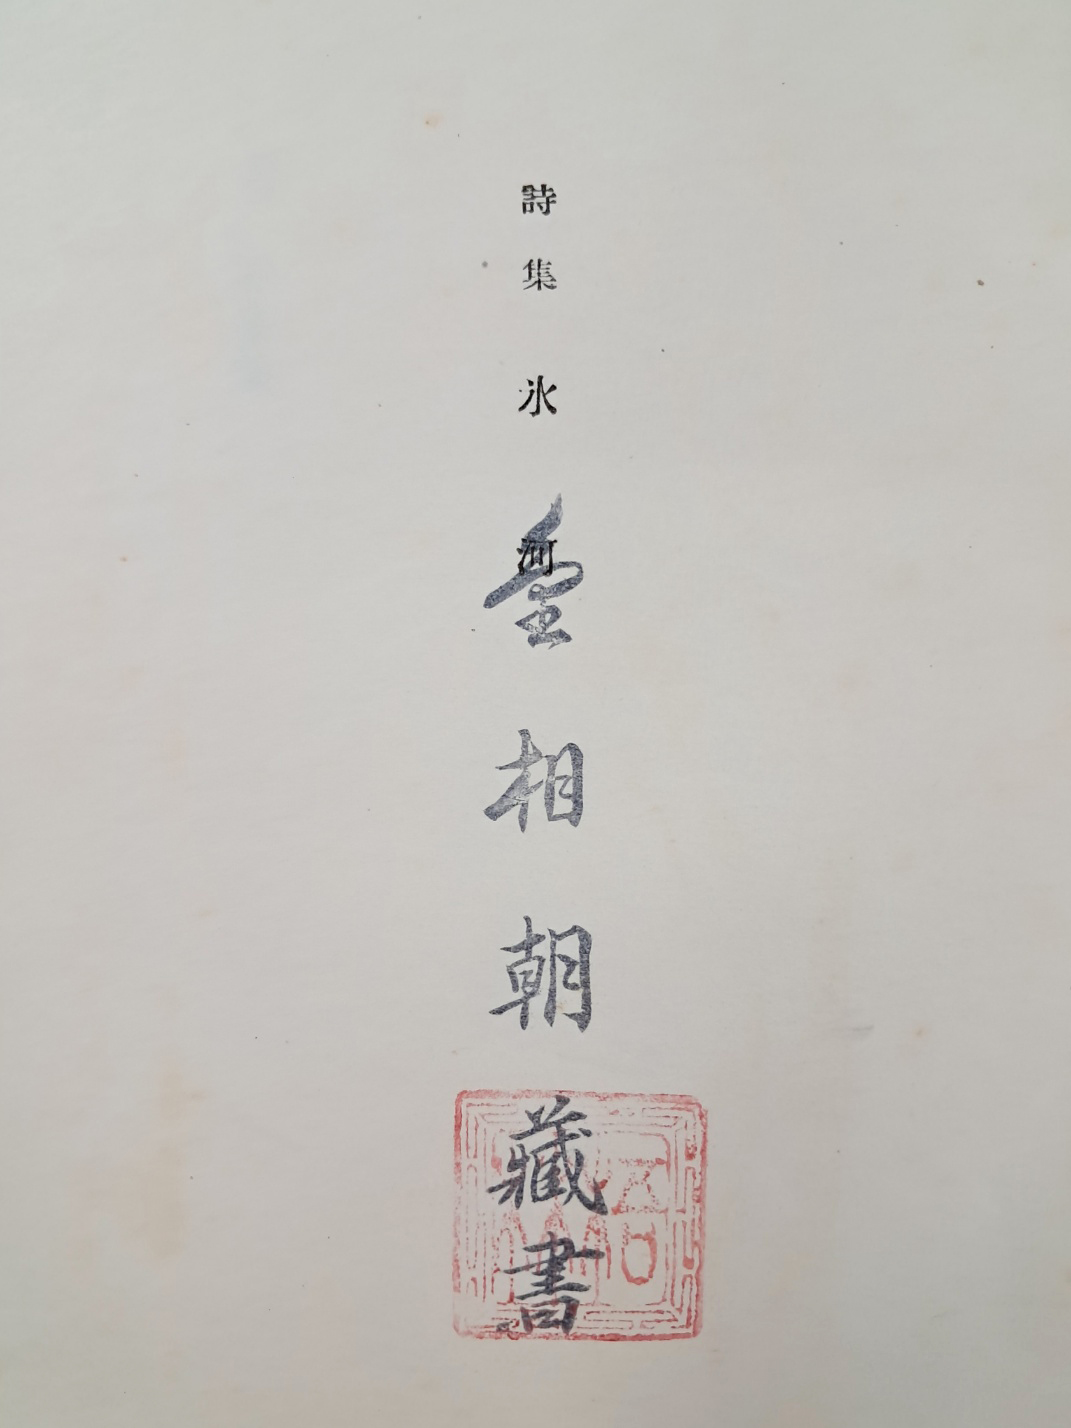 詩集 氷河
相朝藏書